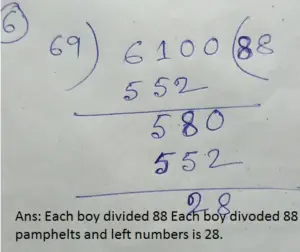 6
69) 6100 (88
552
580
552
28
Ans: Each boy divided 88 Each boy divoded 88
pamphelts and left numbers is 28.